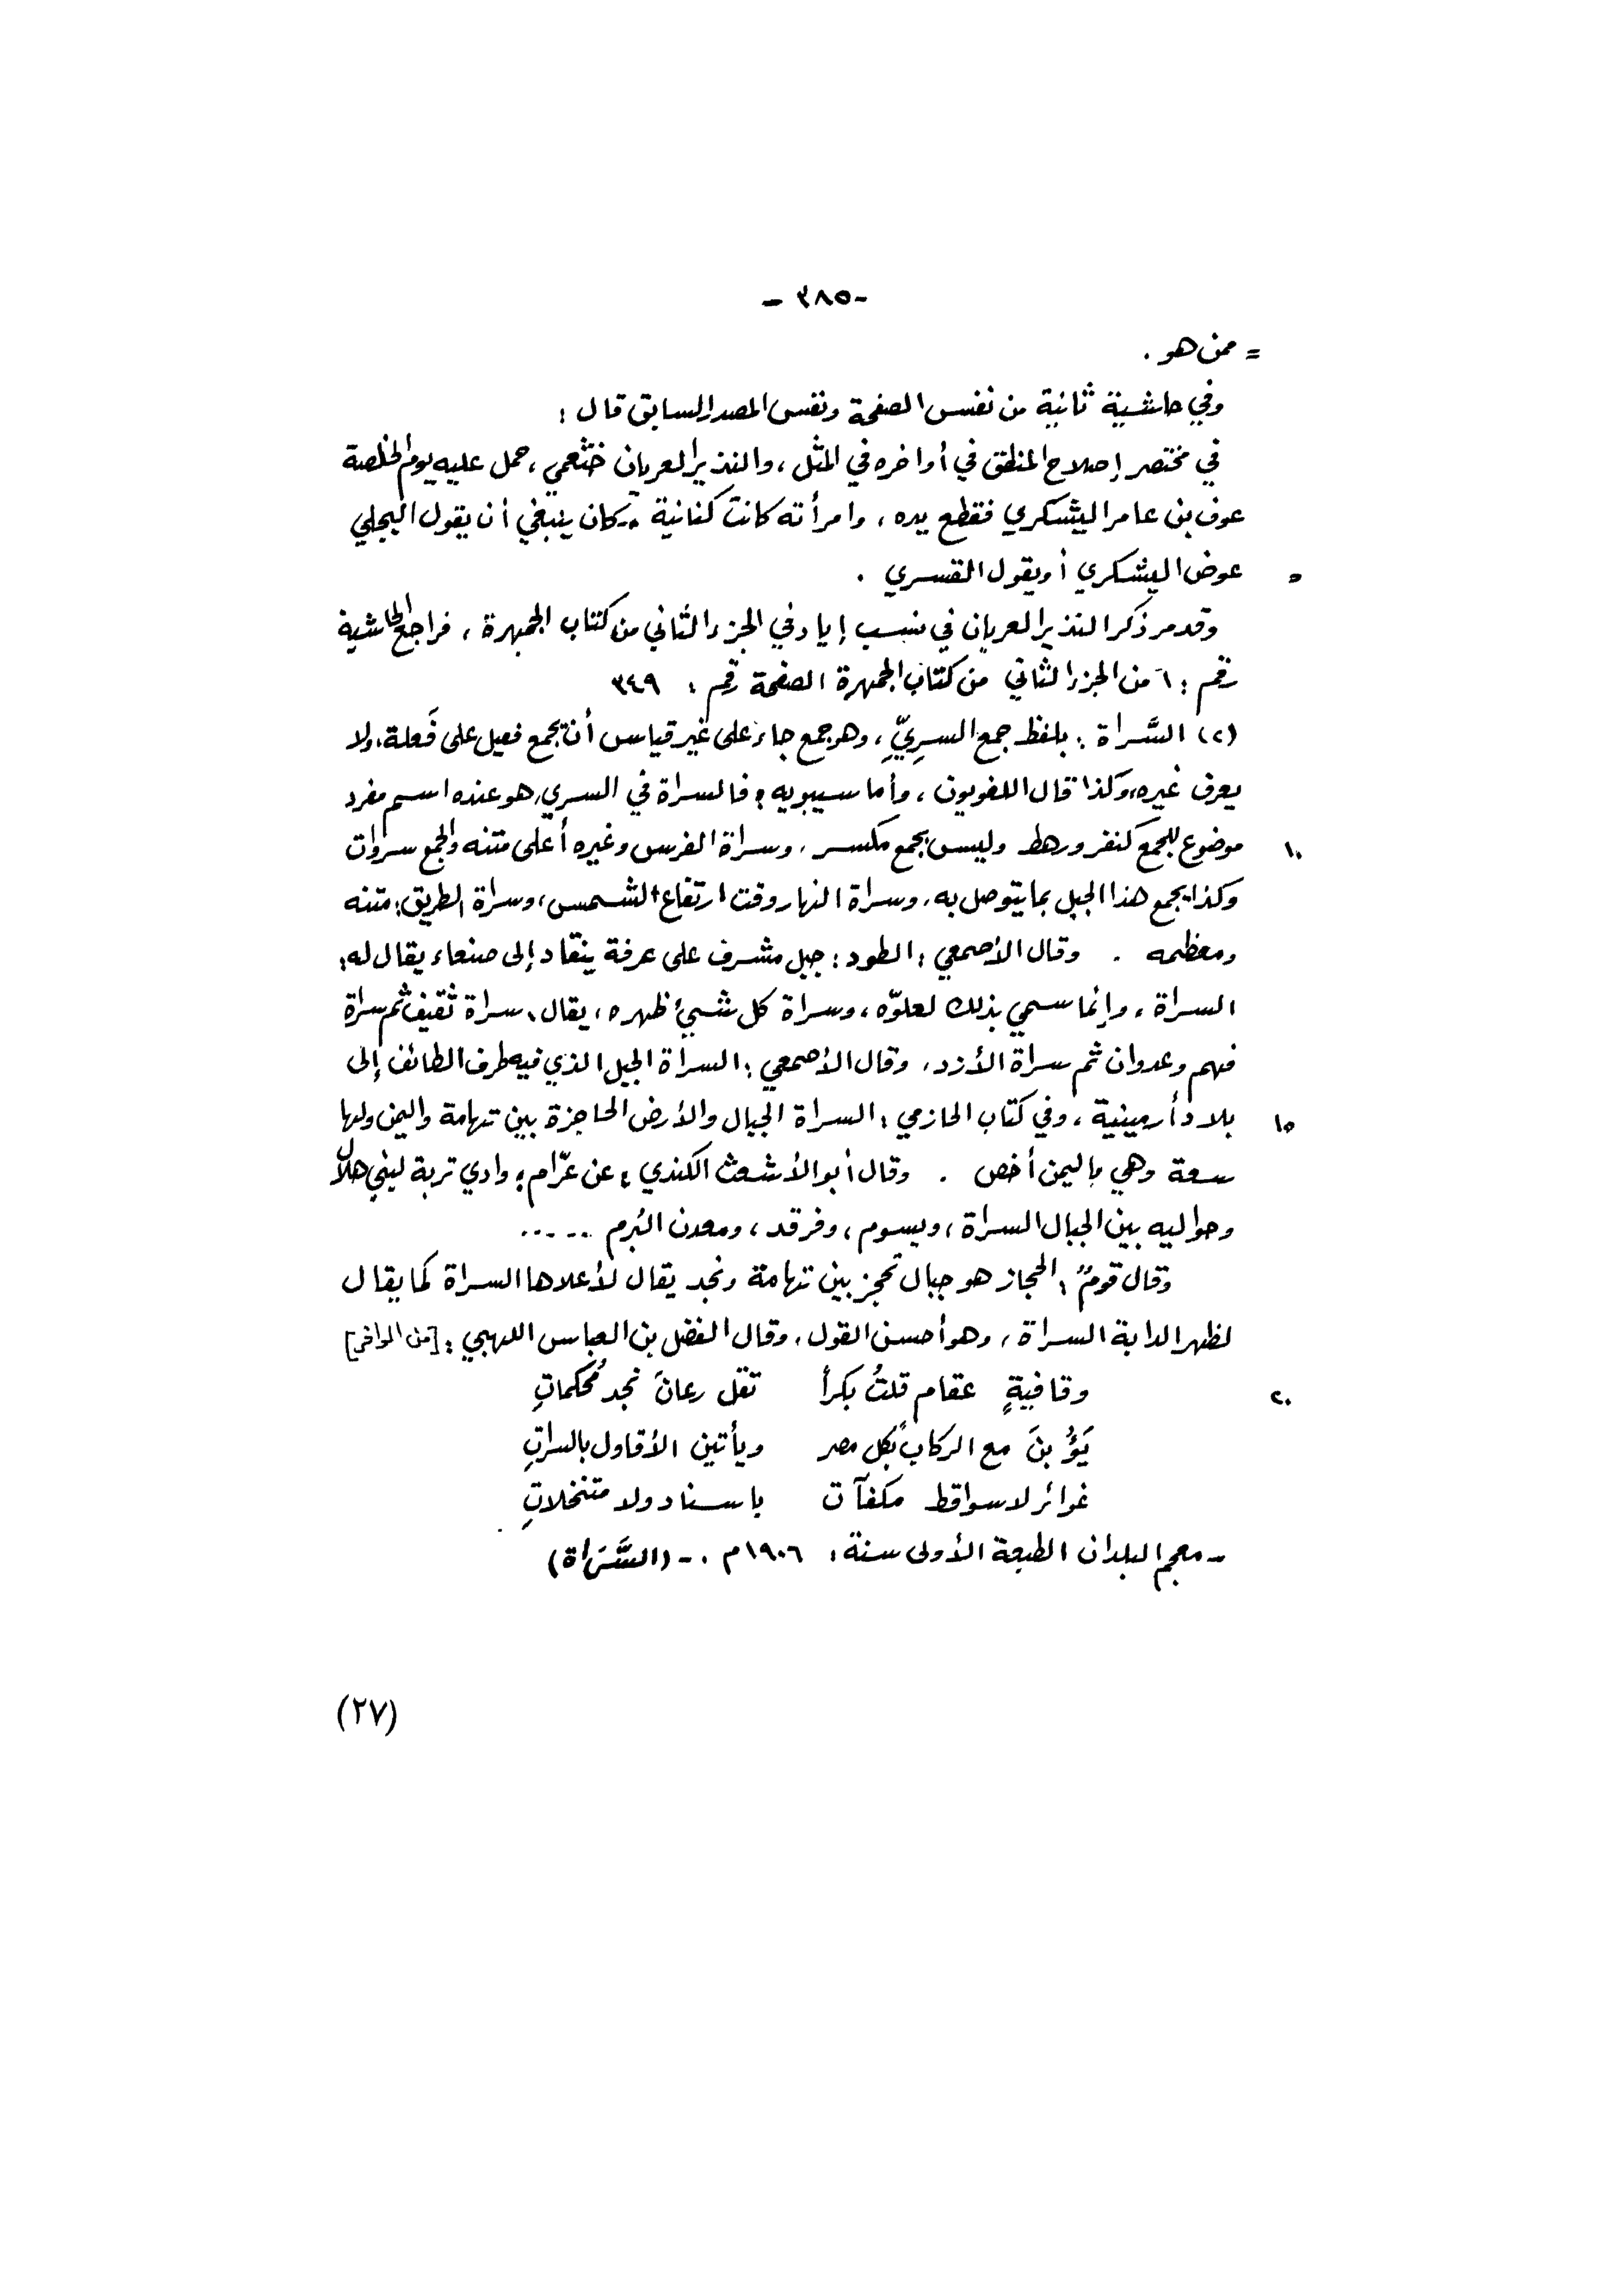 - ٣٨٥ -
= ممن هو .
وفي حاشية ثانية من نفس الصفحة ونفس المصدر السابق قال :
في مختصر إصلاح المنطق في أواخره في المثل ، والنذير العريان خثعمي ، حمل عليه يوم الخلصة
عوف بن عامر اليشكري فقطع يده ، وامرأته كانت كنانية - كان ينبغي أن يقول البجلي
٥ عوض اليشكري أو يقول القسري .
وقد مر ذكر النذير العريان في نسب إياد في الجزء الثاني من كتاب الجمهرة ، فراجع الحاشية
رقم : ٦ من الجزء الثاني من كتاب الجمهرة الصفحة رقم : ٣٤٩
(٢) السَّراة : بلفظ جمع السرِيِّ ، وهو جمع جاء على غير قياس أن يجمع فعيل على فَعلة ، ولا
يعرف غيره ، وكذا قال اللغويون ، وأما سيبويه ؛ فالسراة في السري ، هو عنده اسم مفرد
١٠ موضوع للجمع كنفر ورهط وليس بجمع مكسر ، وسراة الفرس وغيره أعلى متنه والجمع سروات
وكذا يجمع هذا الجبل بما يتوصل به ، وسراة النهار وقت ارتفاع الشمس ، وسراة الطريق : متنه
ومعظمه . وقال الأصمعي : الطود : جبل مشرف على عرفة ينقاد إلى صنعاء يقال له :
السراة ، وإنما سمي بذلك لعلوّه ، وسراة كل شيئ ظهره ، يقال ، سراة ثقيف ثم سراة
فهم وعدوان ثم سراة الأزد ، وقال الأصمعي : السراة الجبل الذي فيه طرف الطائف إلى
١٥ بلاد أرمينية ، وفي كتاب الحازمي : السراة الجبال والأرض الحاجزة بين تهامة واليمن ولها
سعة وهي باليمن أخص . وقال أبو الأشعث الكندي ؛ عن عرّام ؛ وادي تربة لبني هلال
وحواليه بين الجبال السراة ، ويسوم ، وفرقد ، ومعدن البُرم .....
وقال قومٌ : الحجاز هو جبال تحجز بين تهامة ونجد يقال لأعلاها السراة كما يقال
لظهر الدابة السراة ، وهو أحسن القول ، وقال الفضل بن العباس اللهبي : [من الوافر]
٢٠ وقافيةٍ عقام قلتُ بكراً تقل رعانَ نجد مُحكماتِ
يَؤُبنَ مع الركاب بكل مصر ويأتين الأقاول بالسراتِ
غوائر لا سواقط مكفآت بإسناد ولا متنخلاتِ
- معجم البلدان الطبعة الأولى سنة : ١٩٠٦ م . - (السَّرَاة)
(٢٧)